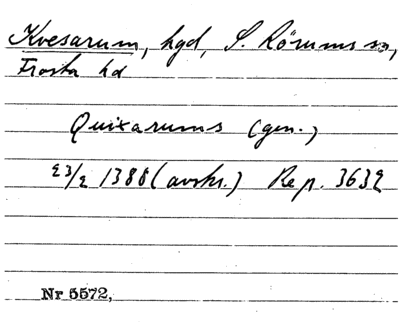 Kvesarum, hgd, S. Rörums sn,
Frosta hd
Quixarums (gen.)
23/2 1388 (avskr.) Rep. 3632
Nr 5572,